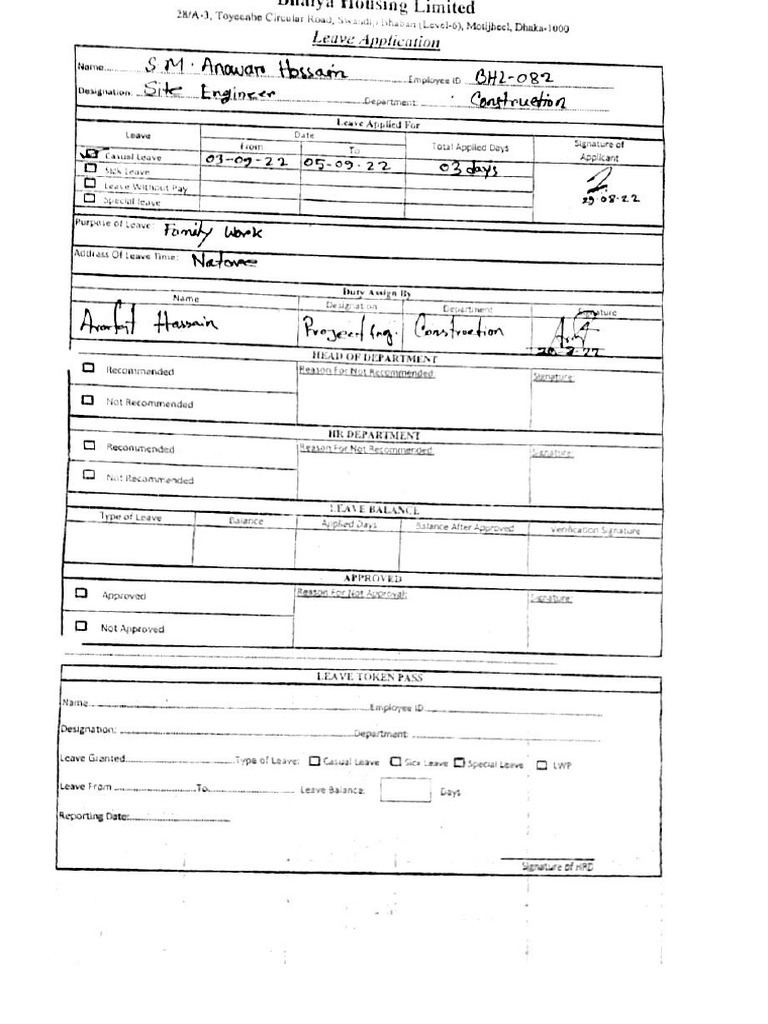 Bhaiya Housing Limited
28/A-3, Toyeenbe Circular Road, Swandip Bhaban (Level-6), Motijheel, Dhaka-1000
Leave Application
Name S M. Anawar Hossain Employee ID BHL-082
Designation: Site Engineer Department: Construction
Leave Applied For
Leave Date Total Applied Days Signature of Applicant
From To
Casual Leave 03-09-22 05-09-22 03 days
Sick Leave
Leave Without Pay
Special leave 29.08.22
Purpose of Leave: Family Work
Address Of Leave Time: Natore
Duty Assign By
Name Designation Department Signature
Hassain Project Eng. Construction
HEAD OF DEPARTMENT
Recommended Reason For Not Recommended: Signature:
Not Recommended
HR DEPARTMENT
Recommended Reason For Not Recommended: Signature:
Not Recommended
LEAVE BALANCE
Type of Leave Balance Applied Days Balance After Approved Verification Signature
APPROVED
Approved Reason For Not Approval: Signature:
Not Approved
LEAVE TOKEN PASS
Name Employee ID
Designation: Department:
Leave Granted Type of Leave: Casual Leave Sick Leave Special Leave LWP
Leave From To Leave Balance: Days
Reporting Date:
Signature of HRD